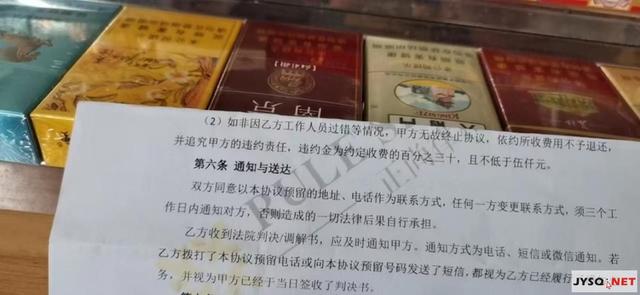 南京
（2）如非因乙方工作人员过错等情况，甲方无故终止协议，依约所收费用不予退还，
并追究甲方的违约责任，违约金为约定收费的百分之三十，且不低于伍仟元。
第六条 通知与送达
双方同意以本协议预留的地址、电话作为联系方式，任何一方变更联系方式，须三个工
作日内通知对方，否则造成的一切法律后果自行承担。
乙方收到法院判决/调解书，应及时通知甲方。通知方式为电话、短信或微信通知。若
方拨打了本协议预留电话或向本协议预留号码发送了短信，都视为乙方已经履行
务，并视为甲方已经于当日签收了判决书。
JYSQ.NET